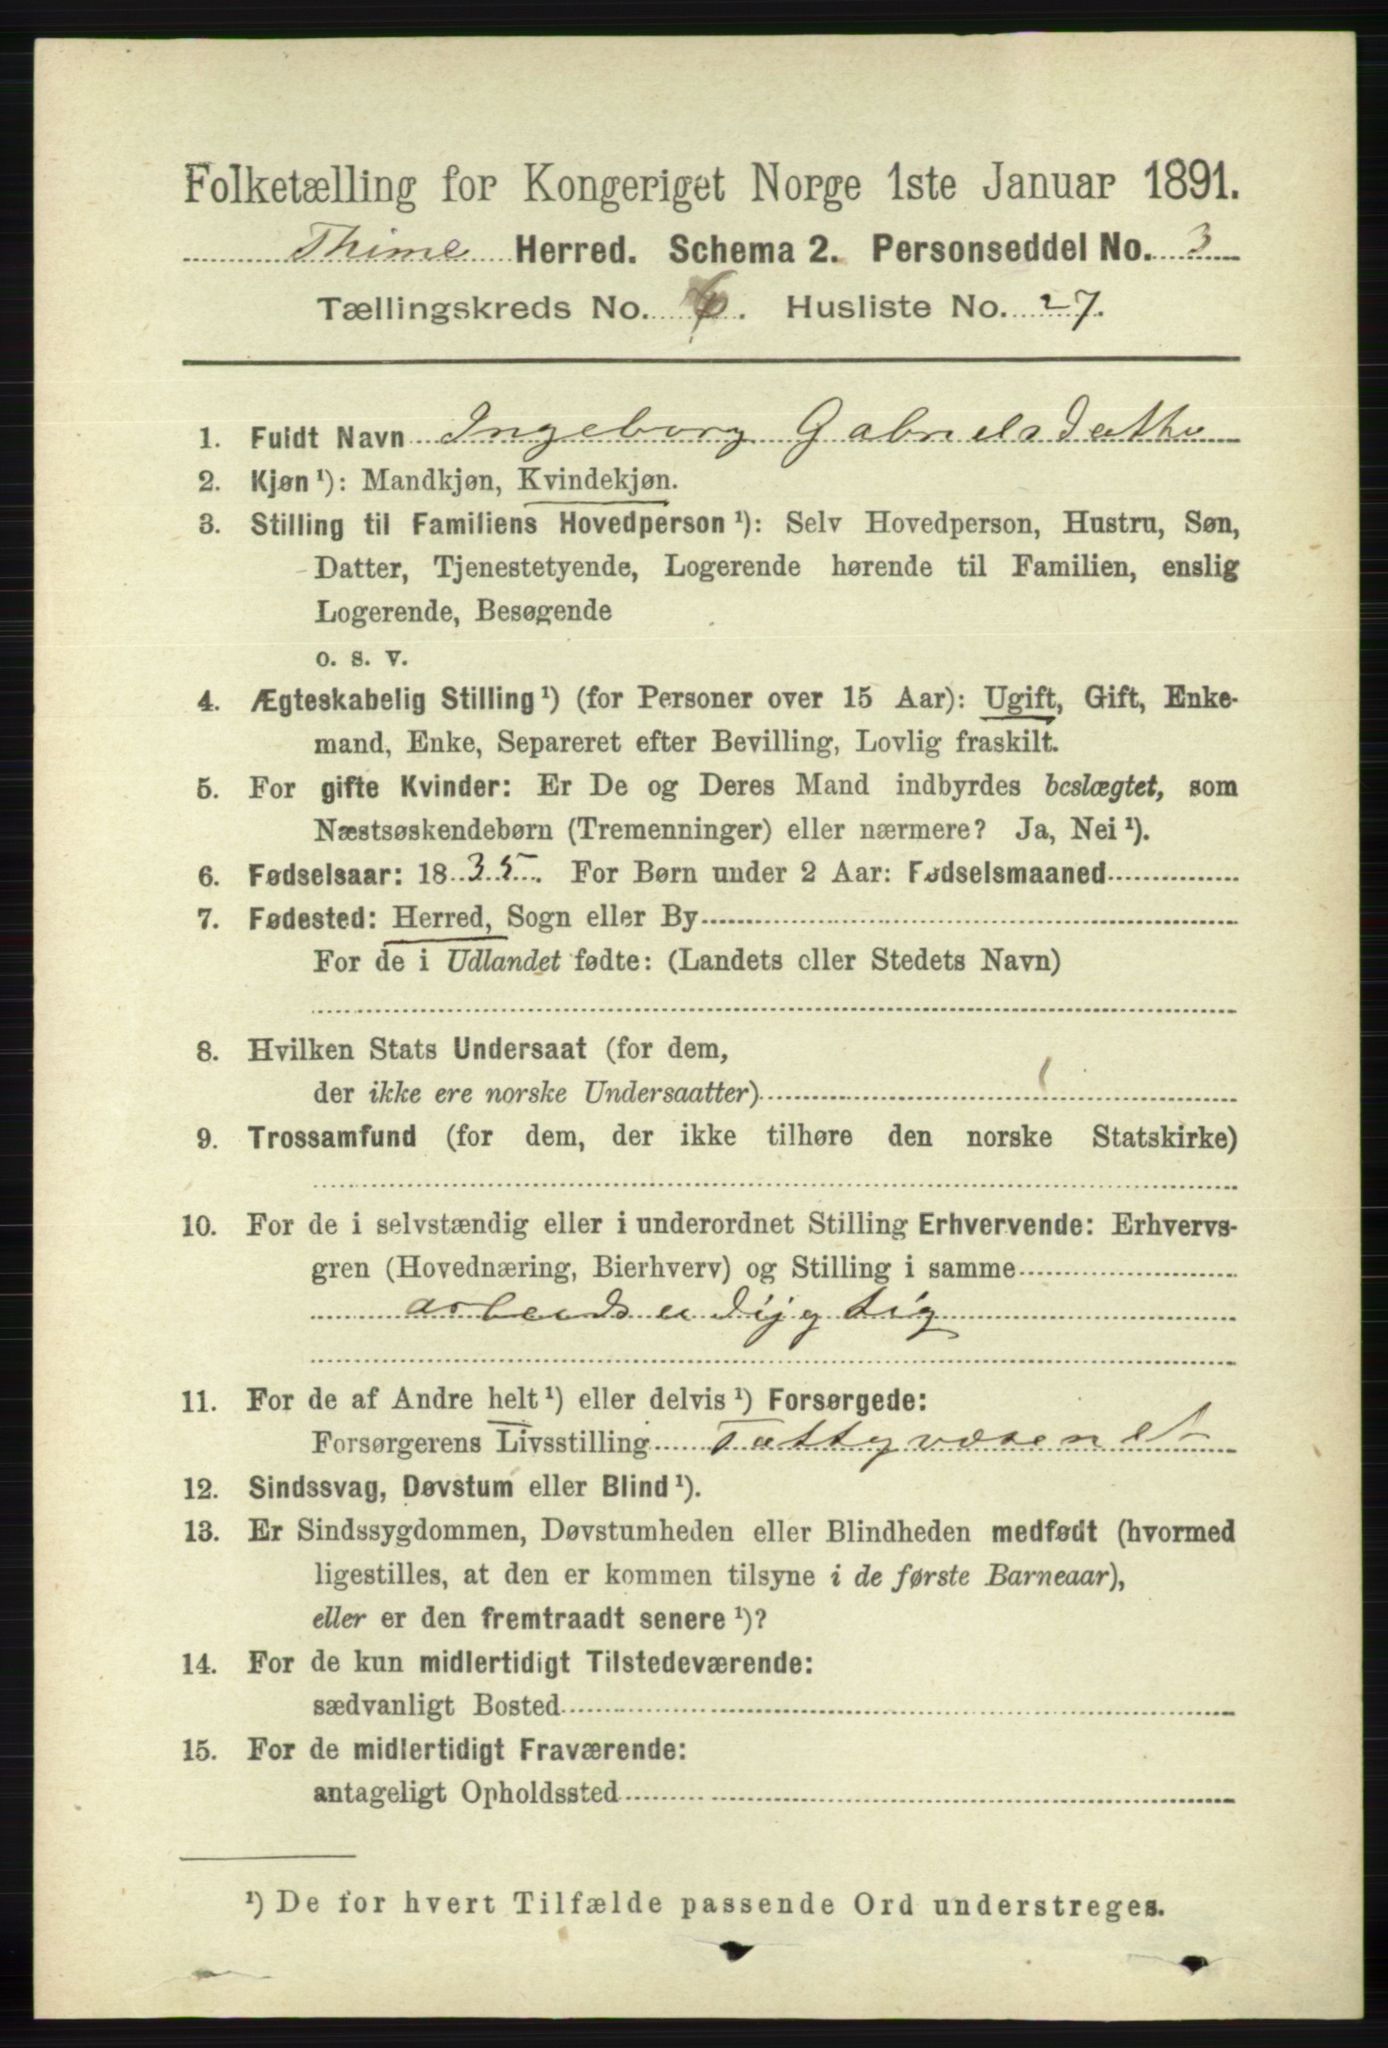 Folketælling for Kongeriget Norge 1ste Januar 1891.
Thime Herred. Schema 2. Personseddel No. 3
Tællingskreds No. 6. Husliste No. 27.
1. Fuldt Navn Ingeborg Gabrielsdatter
2. Kjøn ¹): Mandkjøn, Kvindekjøn.
3. Stilling til Familiens Hovedperson ¹): Selv Hovedperson, Hustru, Søn,
Datter, Tjenestetyende, Logerende hørende til Familien, enslig
Logerende, Besøgende
o. s. v.
4. Ægteskabelig Stilling ¹) (for Personer over 15 Aar): Ugift, Gift, Enke-
mand, Enke, Separeret efter Bevilling, Lovlig fraskilt.
5. For gifte Kvinder: Er De og Deres Mand indbyrdes beslægtet, som
Næstsøskendebørn (Tremenninger) eller nærmere? Ja, Nei ¹).
6. Fødselsaar: 1835. For Børn under 2 Aar: Fødselsmaaned
7. Fødested: Herred, Sogn eller By
For de i Udlandet fødte: (Landets eller Stedets Navn)
8. Hvilken Stats Undersaat (for dem,
der ikke ere norske Undersaatter)
9. Trossamfund (for dem, der ikke tilhøre den norske Statskirke)
10. For de i selvstændig eller i underordnet Stilling Erhvervende: Erhvervs-
gren (Hovednæring, Bierhverv) og Stilling i samme
arbeidsudygtig
11. For de af Andre helt ¹) eller delvis ¹) Forsørgede:
Forsørgerens Livsstilling Fattigvæsenet
12. Sindssvag, Døvstum eller Blind ¹).
13. Er Sindssygdommen, Døvstumheden eller Blindheden medfødt (hvormed
ligestilles, at den er kommen tilsyne i de første Barneaar),
eller er den fremtraadt senere ¹)?
14. For de kun midlertidigt Tilstedeværende:
sædvanligt Bosted
15. For de midlertidigt Fraværende:
antageligt Opholdssted
¹) De for hvert Tilfælde passende Ord understreges.